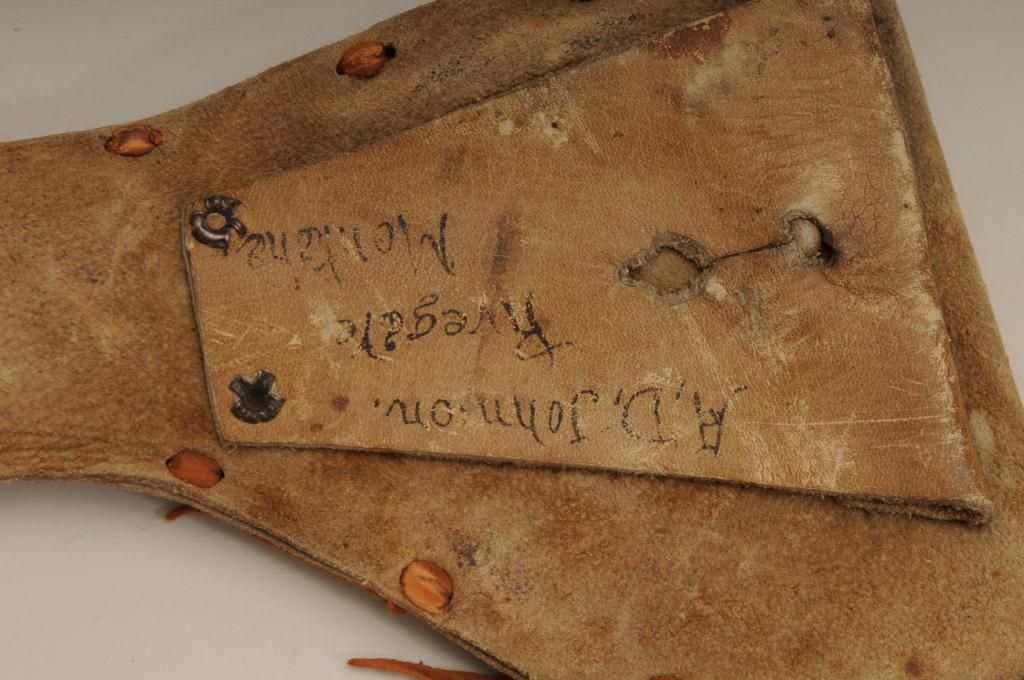 A.D. Johnson.
Ryegate
Montana